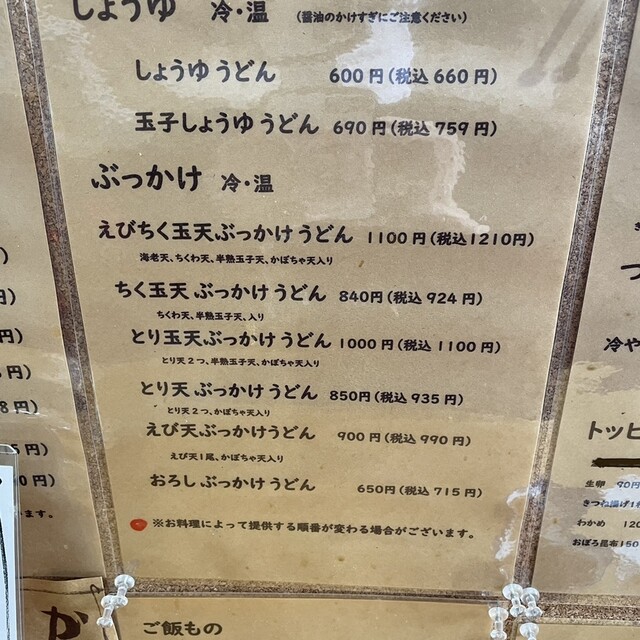 しょうゆ 冷・温 （醤油のかけすぎにご注意ください）
しょうゆうどん 600円（税込660円）
玉子しょうゆうどん 690円（税込759円）
ぶっかけ 冷・温
えびちく玉天ぶっかけうどん 1100円（税込1210円）
海老天、ちくわ天、半熟玉子天、かぼちゃ天入り
ちく玉天ぶっかけうどん 840円（税込924円）
ちくわ天、半熟玉子天、入り
とり玉天ぶっかけうどん 1000円（税込1100円）
とり天2つ、半熟玉子天、かぼちゃ天入り
とり天ぶっかけうどん 850円（税込935円）
とり天2つ、かぼちゃ天入り
えび天ぶっかけうどん 900円（税込990円）
えび天1尾、かぼちゃ天入り
おろしぶっかけうどん 650円（税込715円）
※お料理によって提供する順番が変わる場合がございます。
ご飯もの
か
）
円）
円）
円）
8円）
5円）
0円）
います。
つ
冷や
トッピ
生卵 90円
きつね揚げ1
わかめ 120
おぼろ昆布150